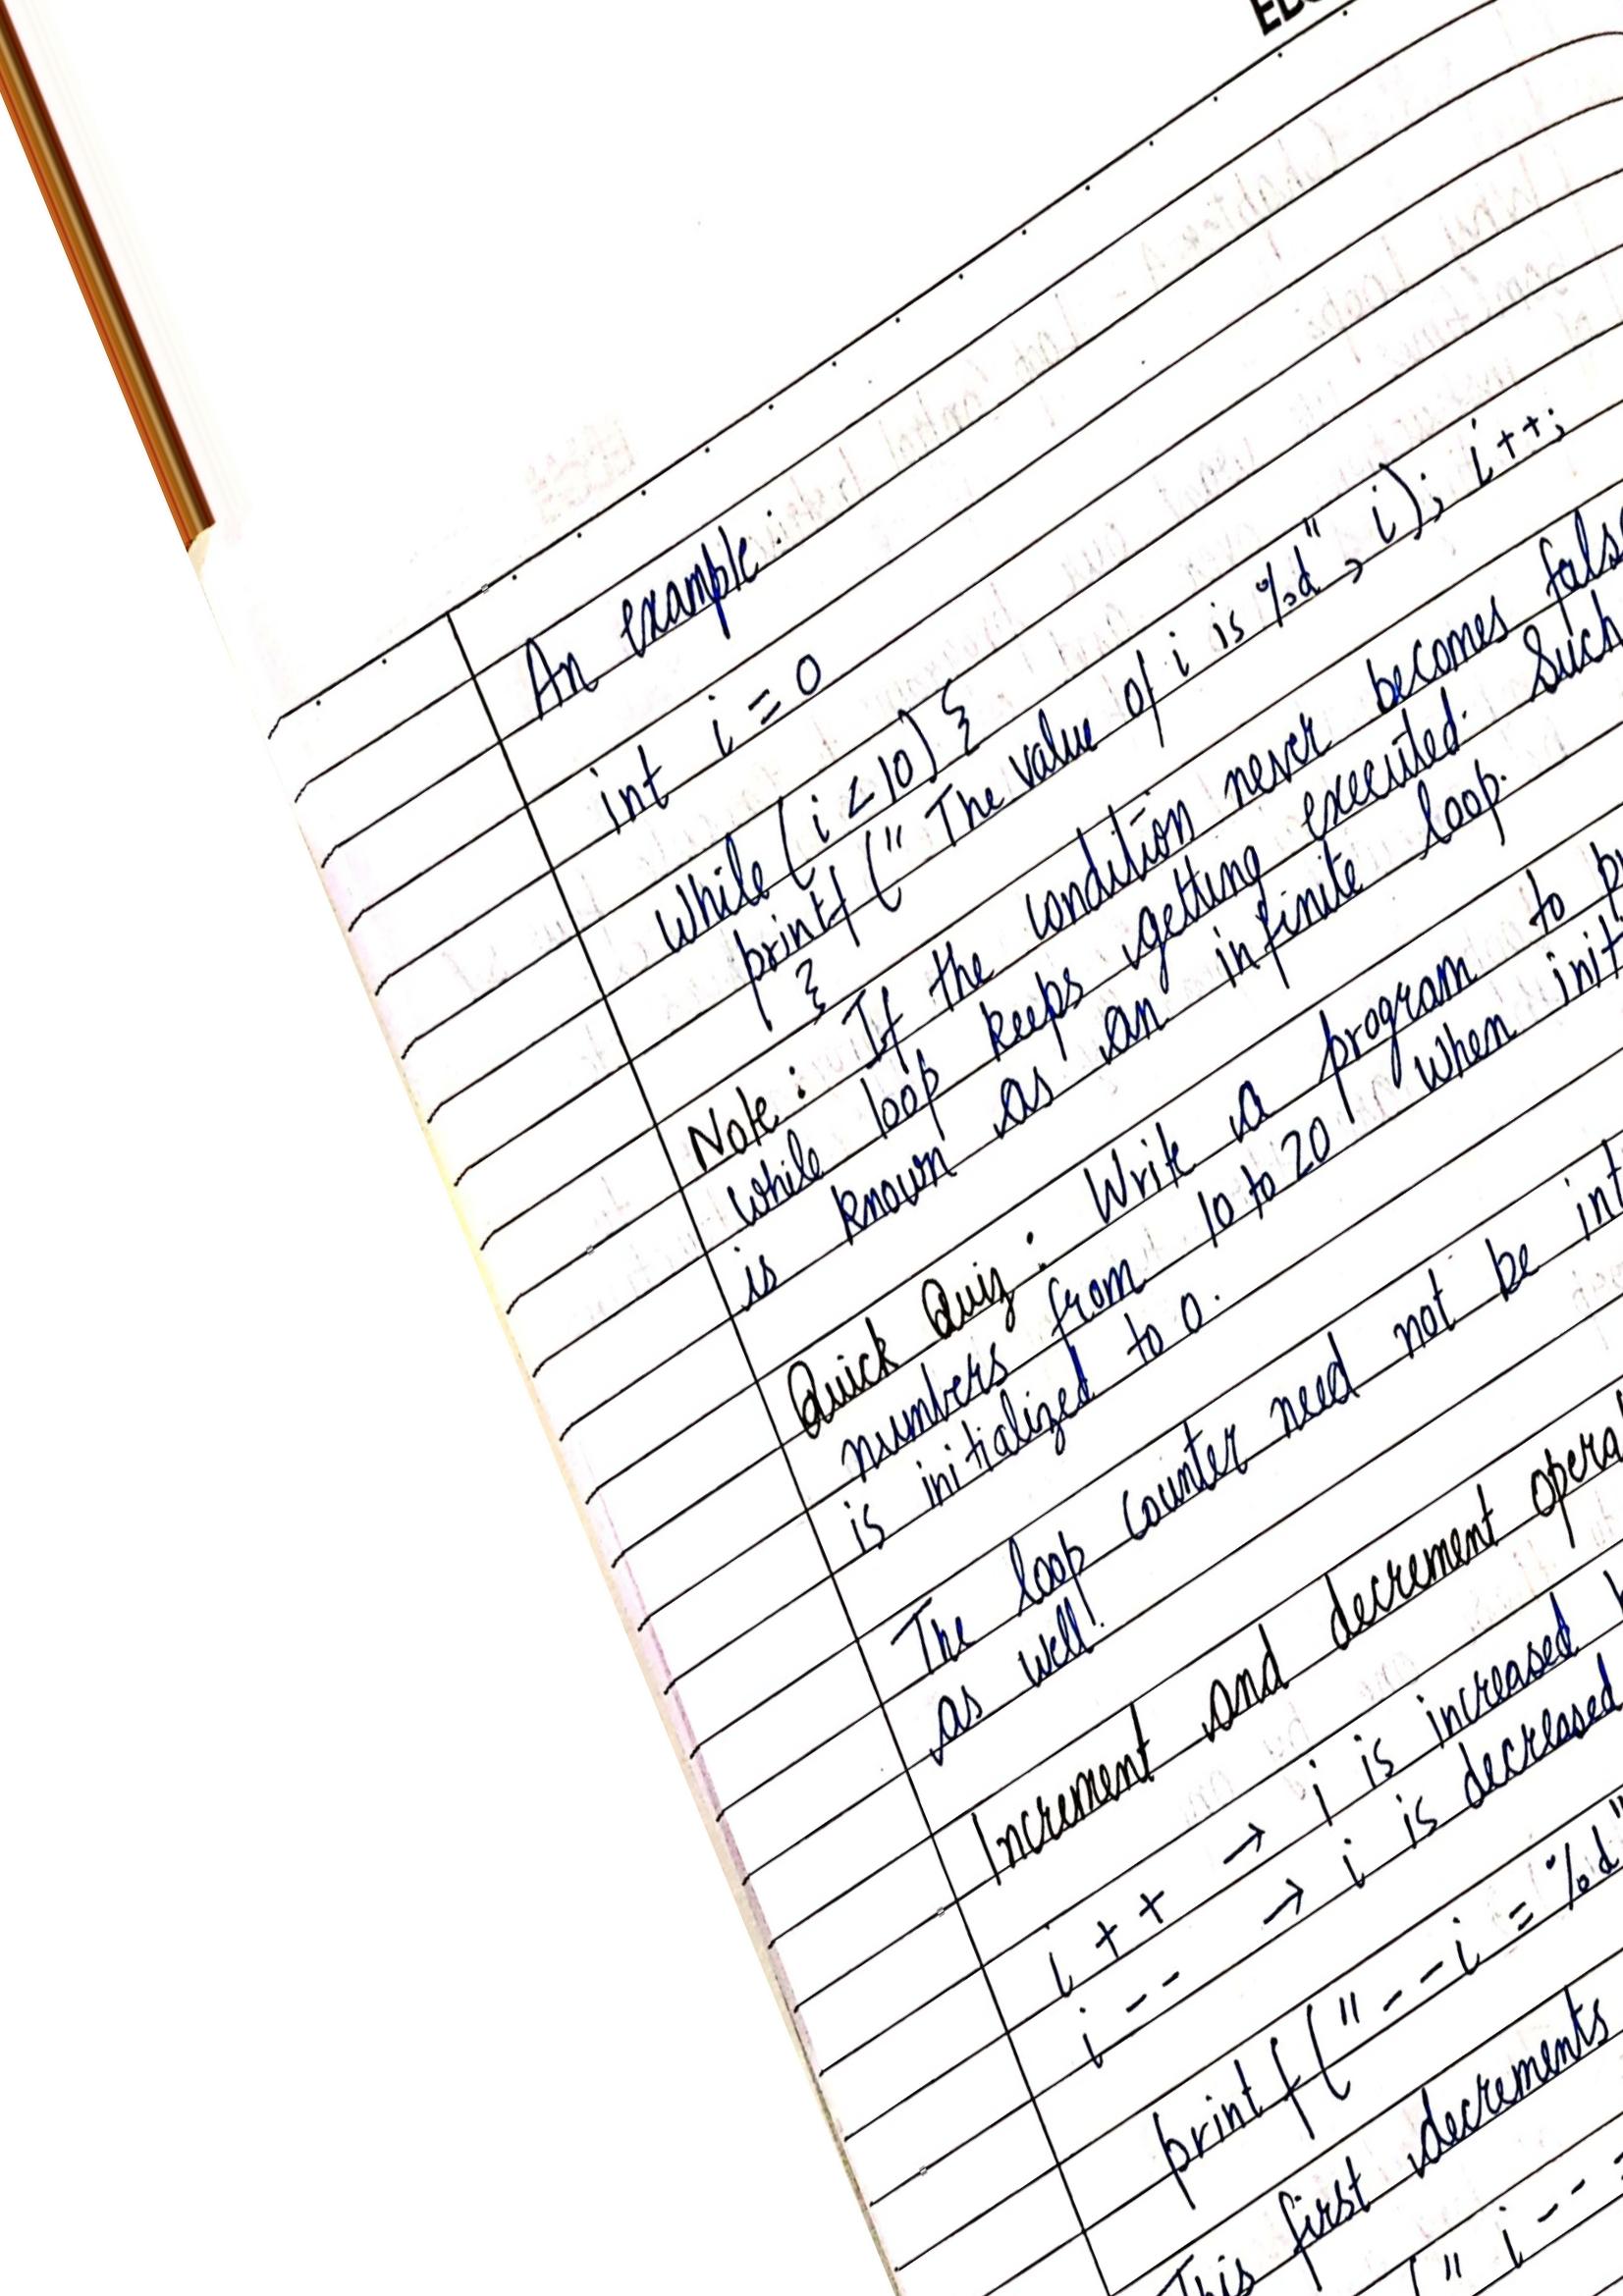 An example :
int i = 0
while ( i < 10 ) {
printf (" The value of i is %d", i); i++;
}
Note : If the condition never becomes
while loop keeps getting executed. Such
is known as an infinite loop.
Quick Quiz : Write a program to
numbers from 10 to 20 when
is initialized to 0.
The loop counter need not be int
as well!
Increment and decrement
i + + → i is increased
i - - → i is decreased
printf (" - - i = %d"
This first decrements
(" i - -